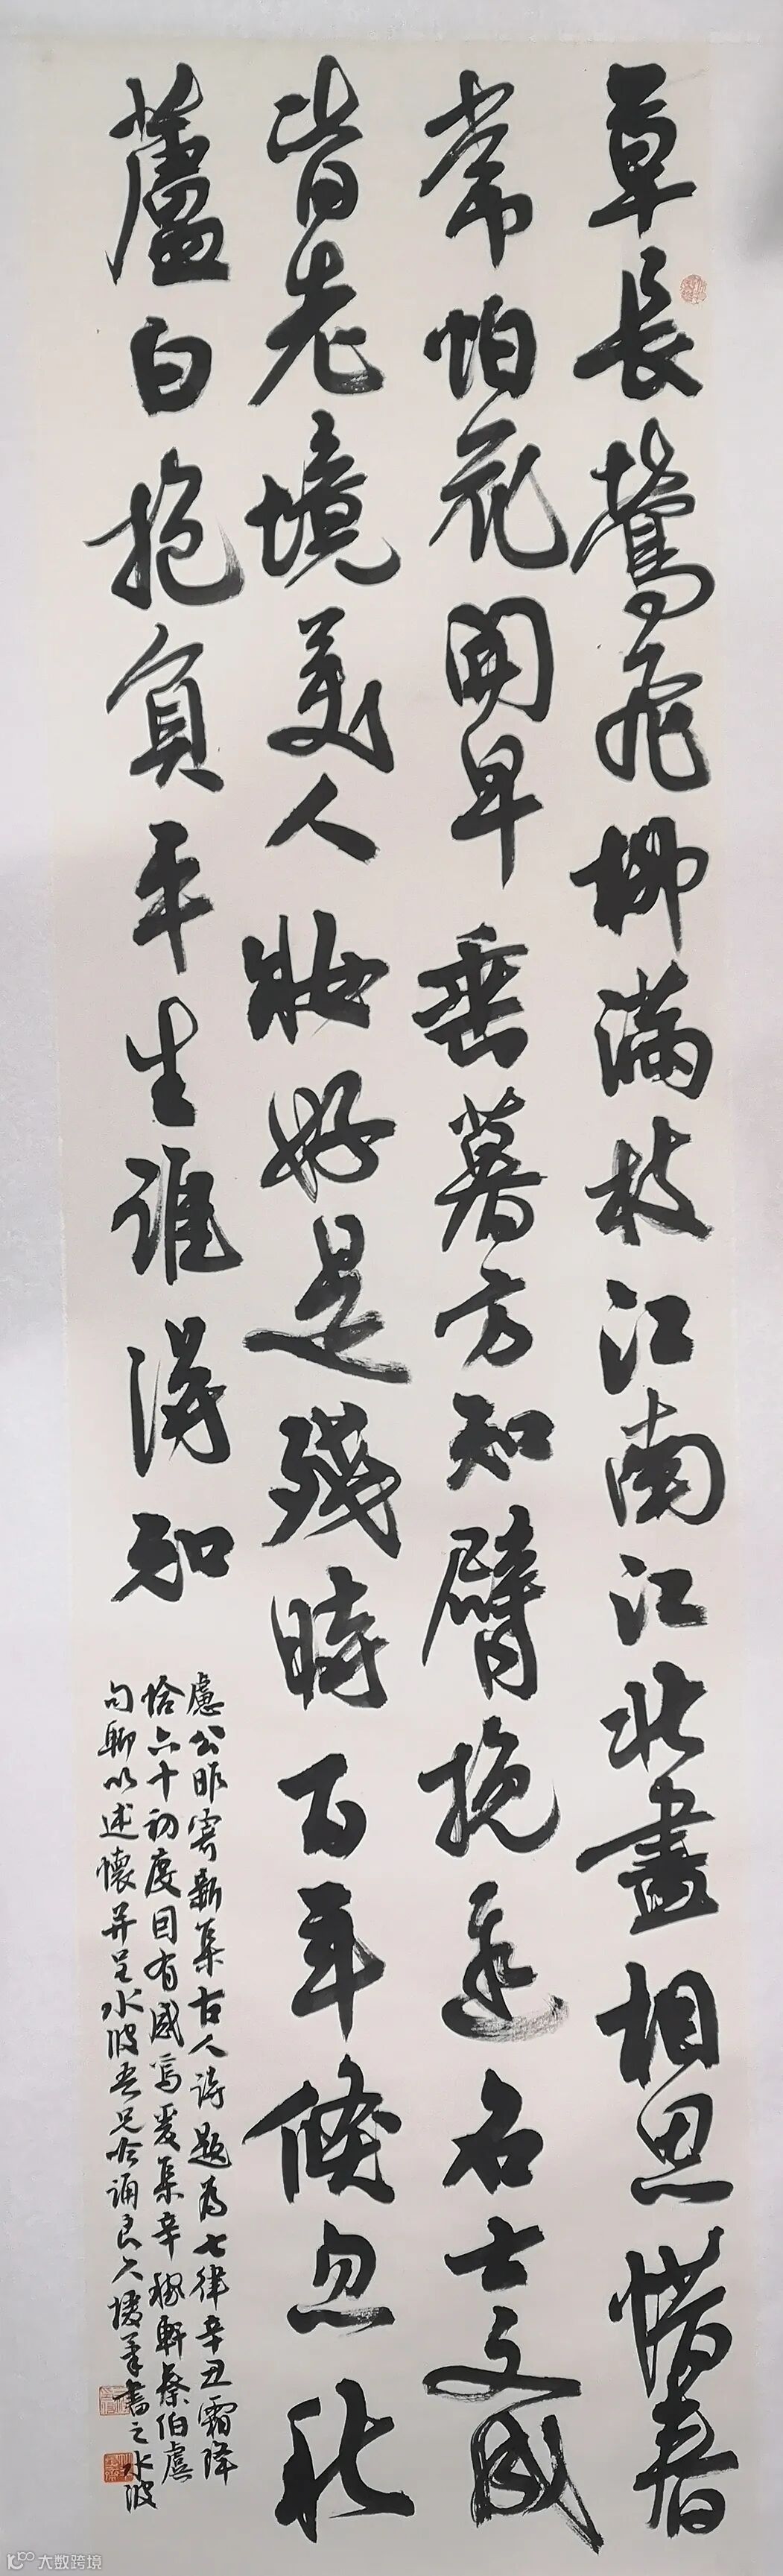 草長鶯飛柳滿枝江南江北盡相思惜春
常怕花開早垂暮方知臂挽遲名士文成
皆老境美人妝好是殘時百年倏忽秋
蘆白抱負平生誰得知
慮公昨寄新集古人詩題為七律辛丑霜降
恰六十初度因有感焉爰集辛稼軒蔡伯虞
句聊以述懷并呈水波吾兄吟誦良久援筆書之水波
大数跨境